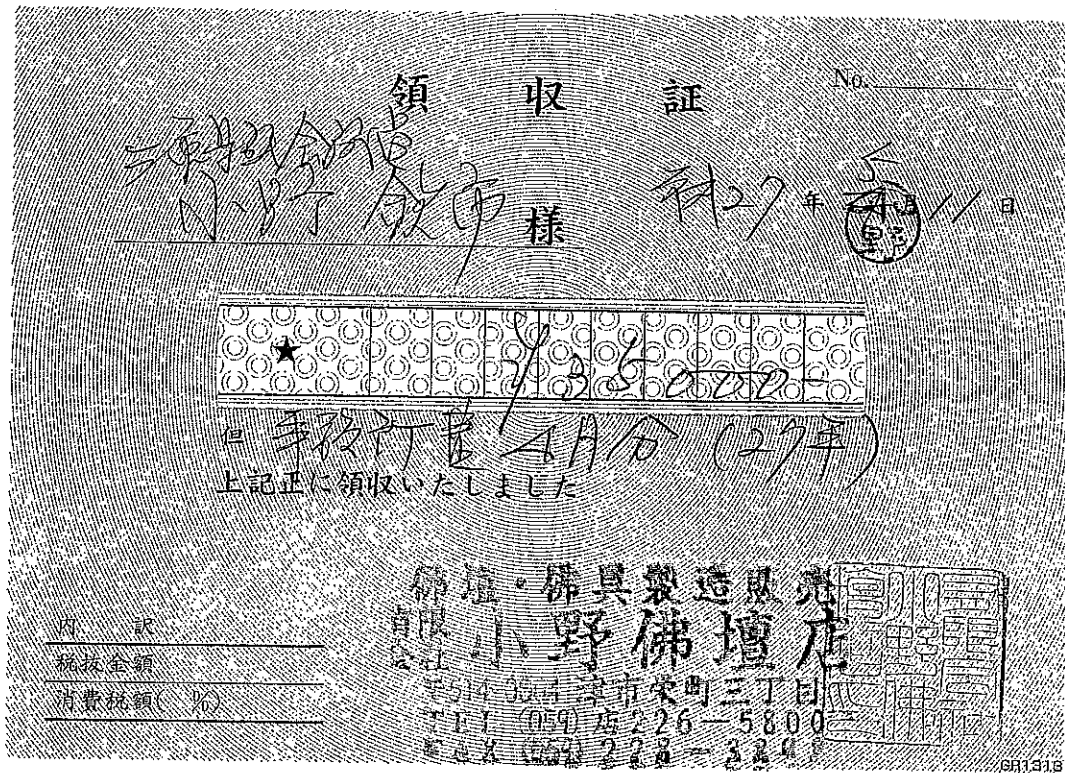 領収証
No.
様
平成27年 5月11日
★ ¥35000-
但 4月分 (27年)
上記正に領収いたしました
内訳
税抜金額
消費税額( %)
佛壇・佛具製造販売
有限会社 小野佛壇店
津市栄町三丁目
TEL (059) 店 226-5800
FAX (059) 228-
GR1313